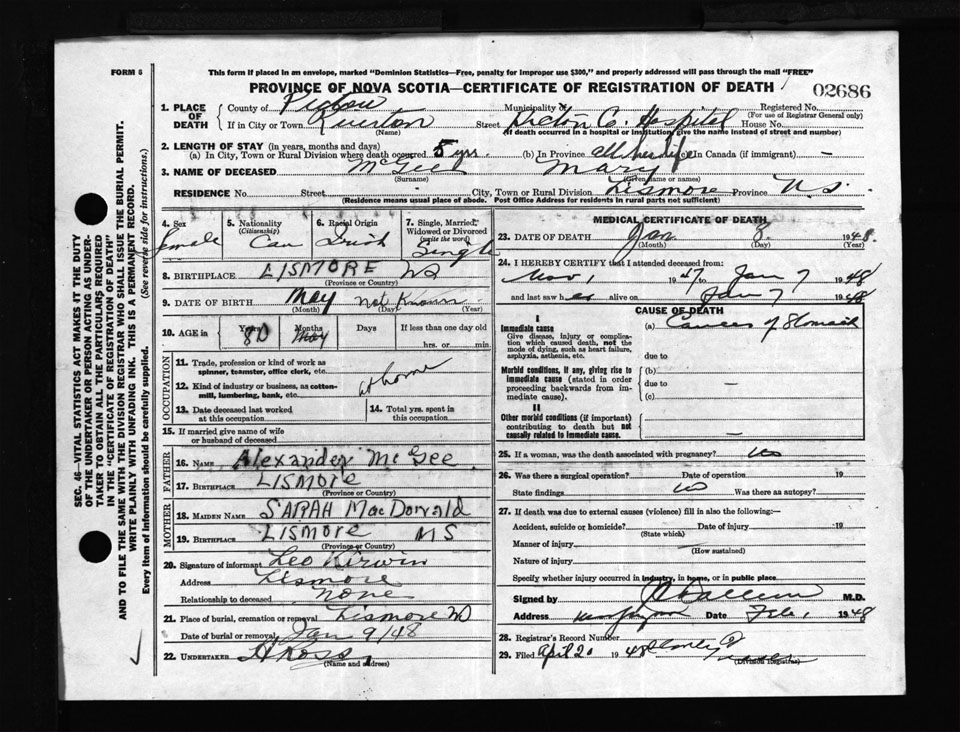 FORM 6
This form if placed in an envelope, marked "Dominion Statistics—Free, penalty for improper use $300," and properly addressed will pass through the mail "FREE"
PROVINCE OF NOVA SCOTIA—CERTIFICATE OF REGISTRATION OF DEATH
02686
1. PLACE OF DEATH
County of Pictou Municipality of Registered No.
(For use of Registrar General only)
If in City or Town Street Pictou C. Hospital House No.
(Name) (If death occurred in a hospital or institution, give the name instead of street and number)
2. LENGTH OF STAY (in years, months and days)
(a) In City, Town or Rural Division where death occurred 5 yrs. (b) In Province all her life In Canada (if immigrant) —
3. NAME OF DECEASED McGee Mary
(Surname) (Given name or names)
RESIDENCE No. Street City, Town or Rural Division Lismore Province N.S.
(Residence means usual place of abode. Post Office Address for residents in rural parts not sufficient)
4. Sex female
5. Nationality (Citizenship) Can
6. Racial Origin Irish
7. Single, Married, Widowed or Divorced (write the word) Single
8. BIRTHPLACE LISMORE NS
(Province or Country)
9. DATE OF BIRTH May Not Known
(Month) (Day) (Year)
10. AGE in Years 80 Months May Days If less than one day old
hrs. or min.
OCCUPATION
11. Trade, profession or kind of work as spinner, teamster, office clerk, etc. at home
12. Kind of industry or business, as cotton-mill, lumbering, bank, etc.
13. Date deceased last worked at this occupation
14. Total yrs. spent in this occupation
15. If married give name of wife or husband of deceased
FATHER
16. NAME Alexander McGee
17. BIRTHPLACE LISMORE
(Province or Country)
MOTHER
18. MAIDEN NAME SARAH MacDonald
19. BIRTHPLACE LISMORE NS
(Province or Country)
20. Signature of informant Leo Kirwin
Address Lismore
Relationship to deceased none
21. Place of burial, cremation or removal Lismore NS
Date of burial or removal Jan 9/48
22. UNDERTAKER H Ross
(Name and address)
MEDICAL CERTIFICATE OF DEATH
23. DATE OF DEATH Jan 8 1948
(Month) (Day) (Year)
24. I HEREBY CERTIFY that I attended deceased from:
Nov 1 1947 Jan 7 1948
and last saw her alive on Jan 7 1948
CAUSE OF DEATH
I
Immediate cause
Give disease, injury or complication which caused death, not the mode of dying, such as heart failure, asphyxia, asthenia, etc.
(a) Cancer of Stomach
due to
Morbid conditions, if any, giving rise to immediate cause (stated in order proceeding backwards from immediate cause).
(b)
due to —
(c)
II
Other morbid conditions (if important) contributing to death but not causally related to immediate cause.
—
25. If a woman, was the death associated with pregnancy? No
26. Was there a surgical operation? Date of operation 19
State findings No Was there an autopsy?
27. If death was due to external causes (violence) fill in also the following:—
Accident, suicide or homicide? Date of injury 19
(State which)
Manner of injury
(How sustained)
Nature of injury
Specify whether injury occurred in industry, in home, or in public place
Signed by M.D.
Address New Glasgow Date Feb 1 1948
28. Registrar's Record Number
29. Filed April 20 1948
(Division Registrar)
SEC. 46—VITAL STATISTICS ACT MAKES IT THE DUTY
OF THE UNDERTAKER OR PERSON ACTING AS UNDER-
TAKER TO OBTAIN ALL THE PARTICULARS REQUIRED
IN THE "CERTIFICATE OF REGISTRATION OF DEATH"
AND TO FILE THE SAME WITH THE DIVISION REGISTRAR WHO SHALL ISSUE THE BURIAL PERMIT.
WRITE PLAINLY WITH UNFADING INK. THIS IS A PERMANENT RECORD.
Every item of information should be carefully supplied. (See reverse side for instructions.)